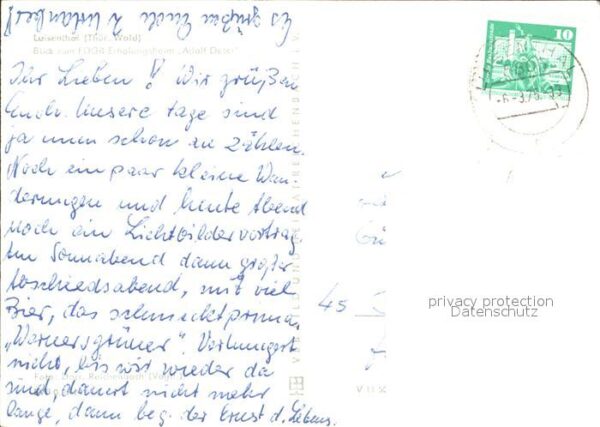 Es grüßen Euch 2 Urlauber!
Luisenthal (Thür. Wald)
Blick zum FDGB-Erholungsheim „Adolf Deter“
Ihr Lieben! Wir grüßen
Euch. Unsere Tage sind
ja nun schon zu zählen.
Noch ein paar kleine Wan-
derungen und heute Abend
noch ein Lichtbildervortrag
Am Sonnabend dann großer
Abschiedsabend, mit viel
Bier, das schmeckt prima,
„Wernersgrüner“. Verhungert
nicht, bis wir wieder da
sind, dauert nicht mehr
lange, dann beg. der Ernst d. Lebens.
Foto: Reichenbach (Vogtl.)
VERLAG BILD UND HEIMAT REICHENBACH I. V.
V 11
10
45
privacy protection
Datenschutz